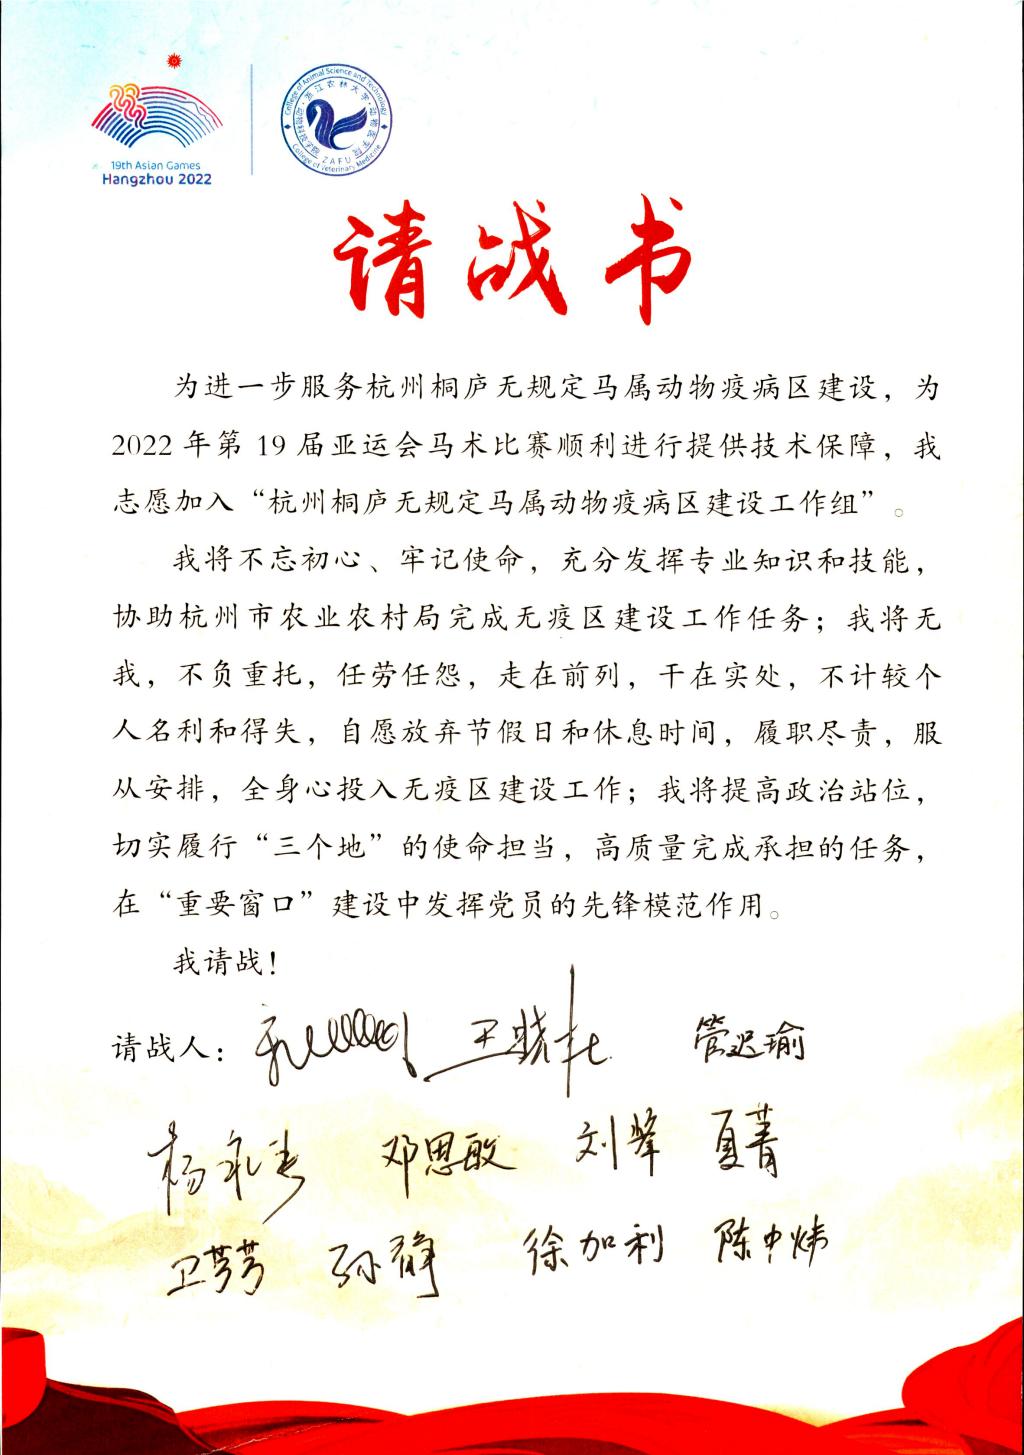 19th Asian Games
Hangzhou 2022
College of Animal Science and Technology
浙江农林大学·动物医学院
动物科技学院
ZAFU
College of Veterinary Medicine
请战书
为进一步服务杭州桐庐无规定马属动物疫病区建设，为
2022年第19届亚运会马术比赛顺利进行提供技术保障，我
志愿加入“杭州桐庐无规定马属动物疫病区建设工作组”。
我将不忘初心、牢记使命，充分发挥专业知识和技能，
协助杭州市农业农村局完成无疫区建设工作任务；我将无
我，不负重托，任劳任怨，走在前列，干在实处，不计较个
人名利和得失，自愿放弃节假日和休息时间，履职尽责，服
从安排，全身心投入无疫区建设工作；我将提高政治站位，
切实履行“三个地”的使命担当，高质量完成承担的任务，
在“重要窗口”建设中发挥党员的先锋模范作用。
我请战！
请战人： 管迟瑜
邓思敏 刘峰 夏菁
卫芳芳 孙静 徐加利 陈中炜